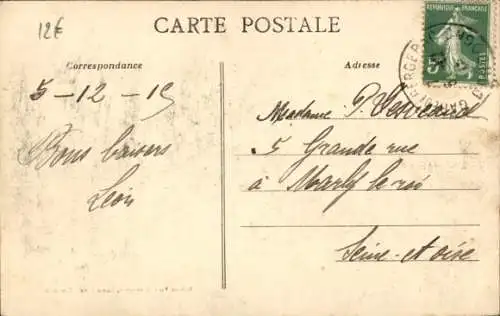 12€
CARTE POSTALE
Correspondance
Adresse
RÉPUBLIQUE FRANÇAISE
5
POSTES
5-12-15
Bons baisers
Léon
Madame P.
5 Grande rue
à Marly le roi
Seine-et oise